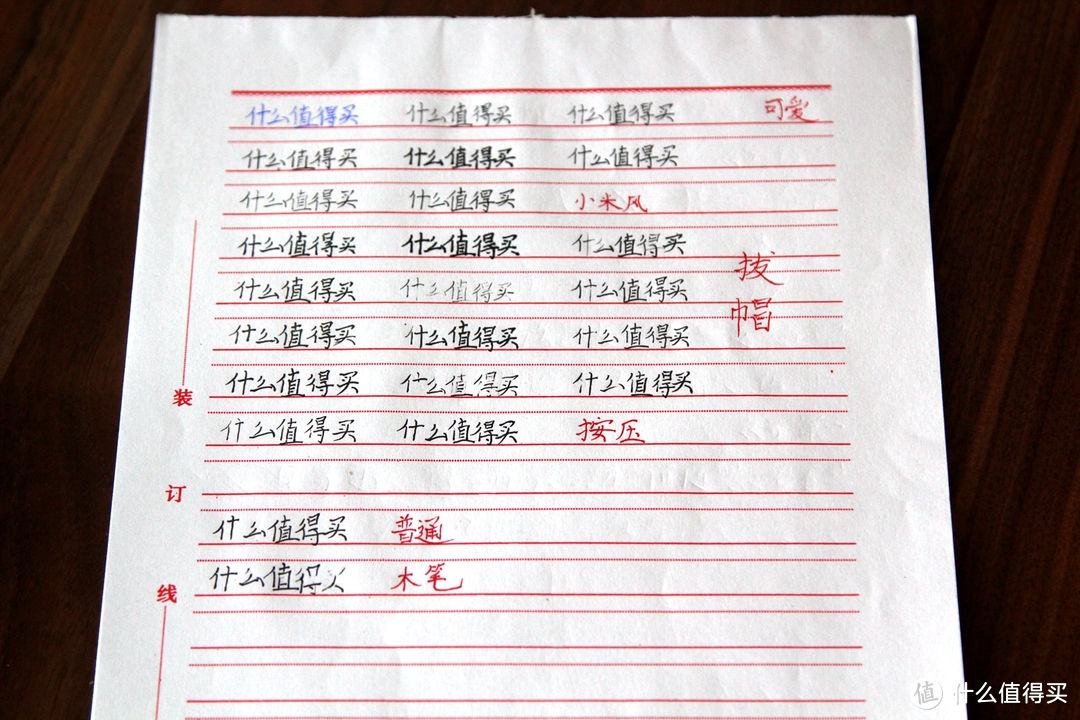 什么值得买 什么值得买 什么值得买 可爱
什么值得买 什么值得买 什么值得买
什么值得买 什么值得买 小米风
什么值得买 什么值得买 什么值得买
拔
什么值得买 什么值得买 什么值得买
帽
什么值得买 什么值得买 什么值得买
什么值得买 什么值得买 什么值得买
装
什么值得买 什么值得买 按压
订
什么值得买 普通
什么值得买 木笔
线
值 什么值得买